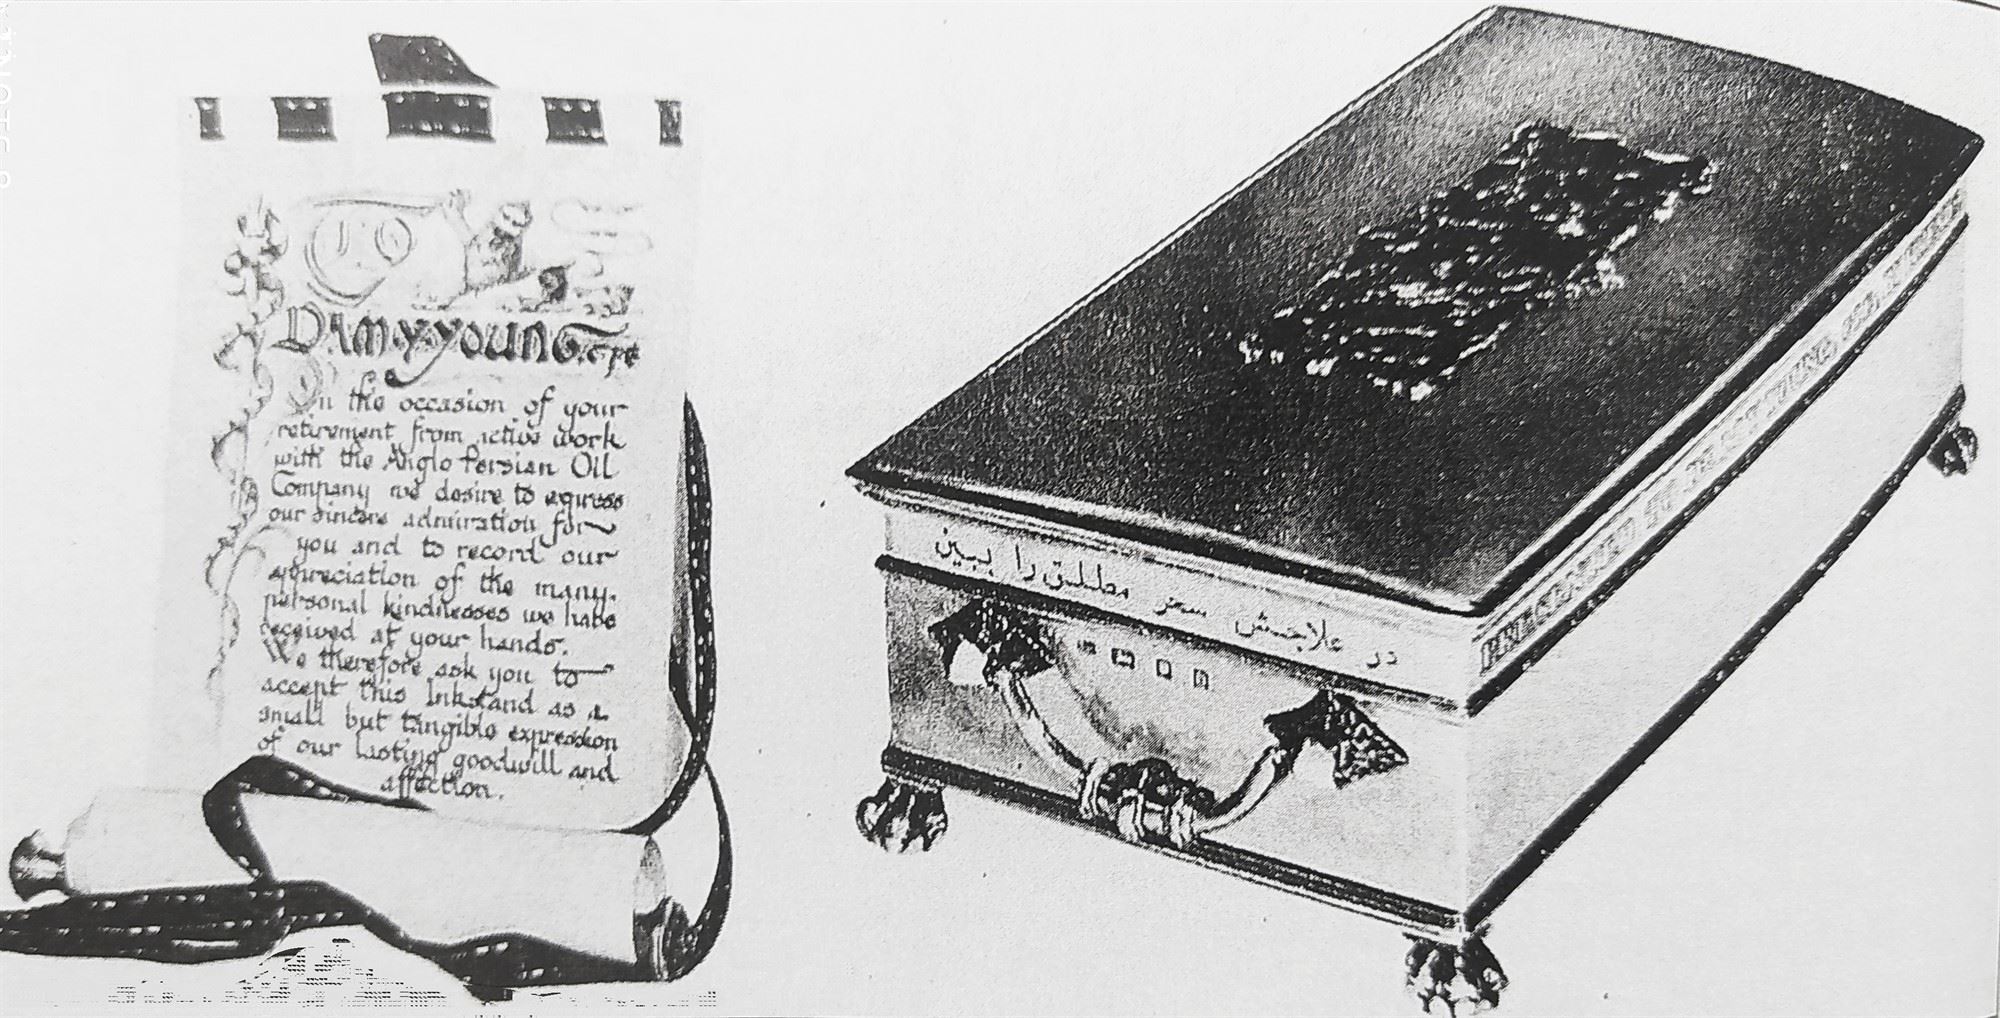 Dr M.Y. YOUNG
On the occasion of your
retirement from active work
with the Anglo Persian Oil
Company we desire to express
our sincere admiration for
you and to record our
appreciation of the many
personal kindnesses we have
received at your hands.
We therefore ask you to
accept this Inkstand as a
small but tangible expression
of our lasting goodwill and
affection.
در علاجش سحر مطلق را ببین
PRESENTED TO